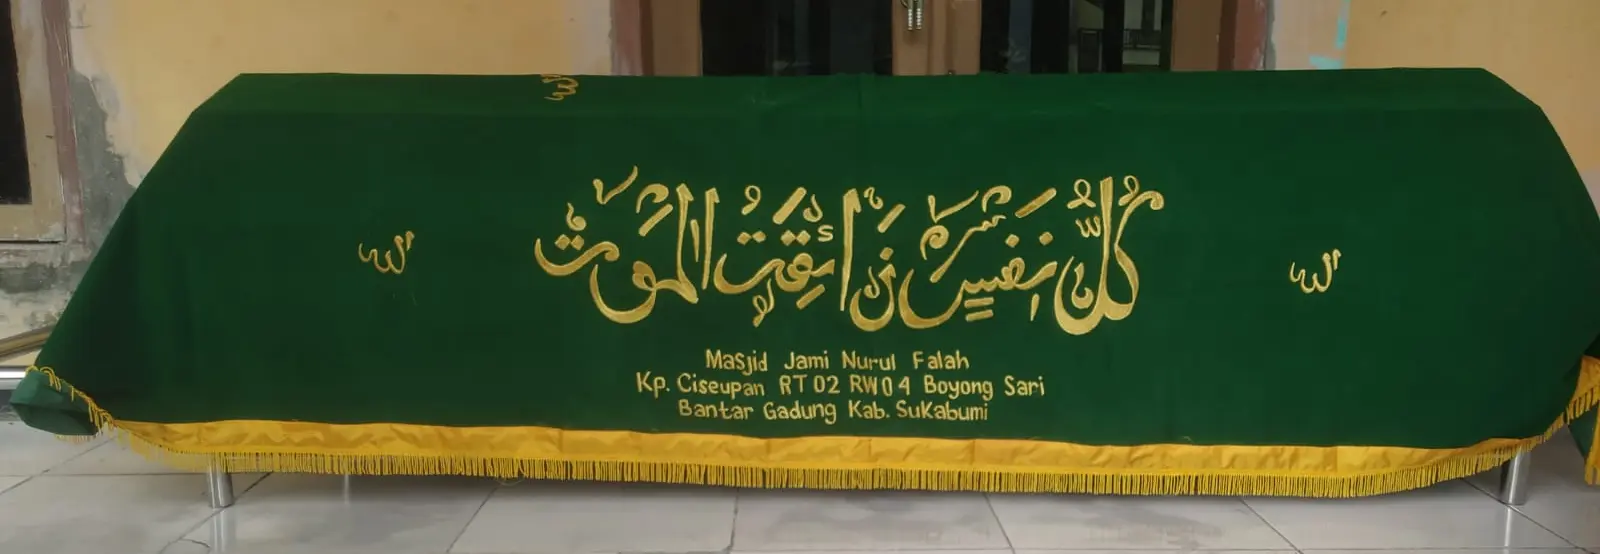 الله
كُلُّ نَفْسٍ ذَائِقَةُ الْمَوْتِ
الله
الله
Masjid Jami Nurul Falah
Kp. Ciseupan RT 02 RW 04 Boyong Sari
Bantar Gadung Kab. Sukabumi